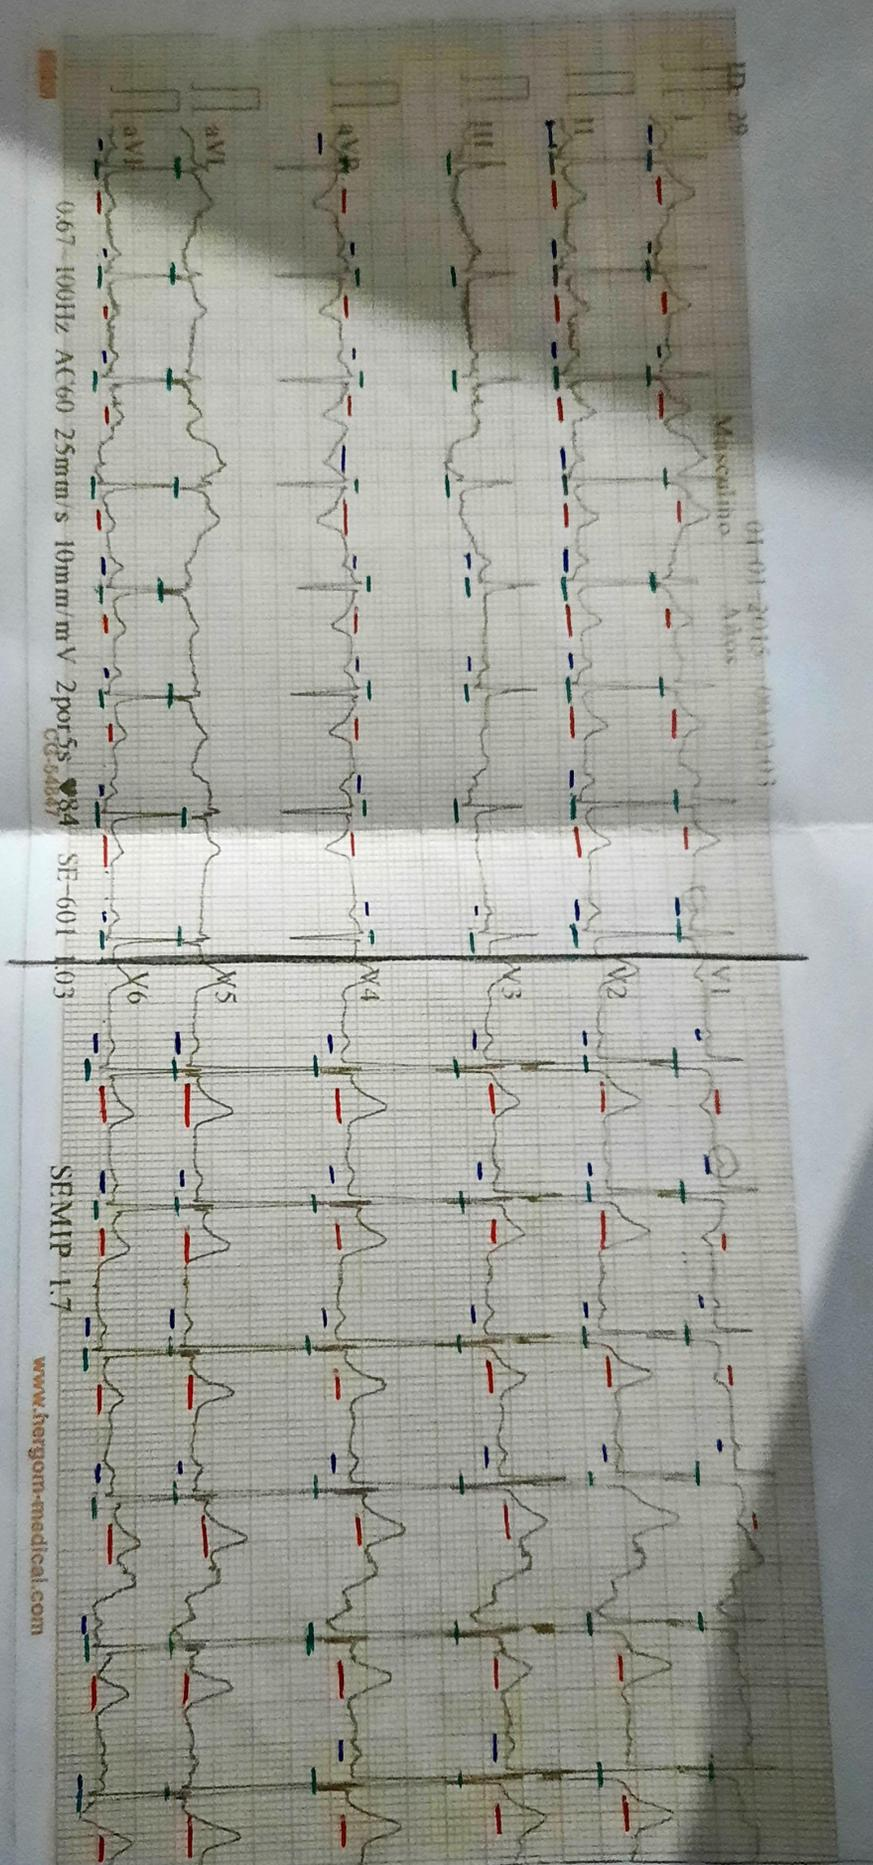 ID: 29
Masculino Años
I
II
III
aVR
aVL
aVF
V1
V2
V3
V4
V5
V6
0.67~100Hz AC60 25mm/s 10mm/mV 2por5s ♥84 SE-601 1.03 SEMIP 1.7
www.hergom-medical.com